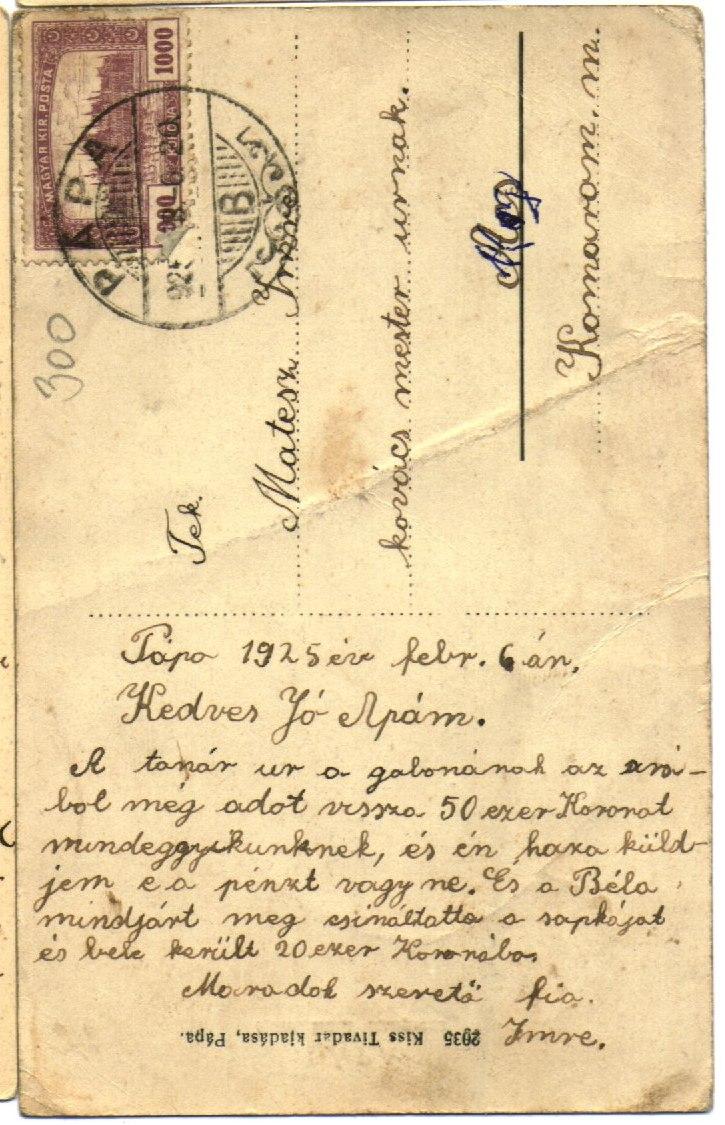 MAGYAR KIR. POSTA
1000
PÁPA
B
300
Tek.
Matesz Imre
kovács mester urnak.
Mog
Komarom. m.
Pápa 1925 év febr. 6 án.
Kedves Jó Apám.
A tanár ur a gabonának az árá-
bol még adot vissza 50 ezer Koronat
mindeggyikunknek, és én haza küld-
jem e a pénzt vagy ne. És a Béla
mindjárt meg csináltatta a sapkájat
és bele került 20 ezer Koronába.
Maradok szerető fia.
Imre.
2035 Kiss Tivadar kiadása, Pápa.